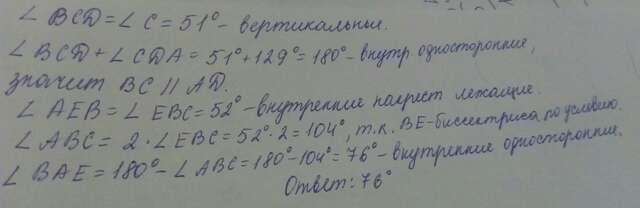 ∠ BCD = ∠ C = 51° - вертикальные.
∠ BCD + ∠ CDA = 51° + 129° = 180° - внутр односторонние,
значит BC || AD.
∠ AEB = ∠ EBC = 52° - внутренние накрест лежащие.
∠ ABC = 2 · ∠ EBC = 52° · 2 = 104°, т.к. BE - биссектриса по условию.
∠ BAE = 180° - ∠ ABC = 180° - 104° = 76° - внутренние односторонние.
Ответ: 76°